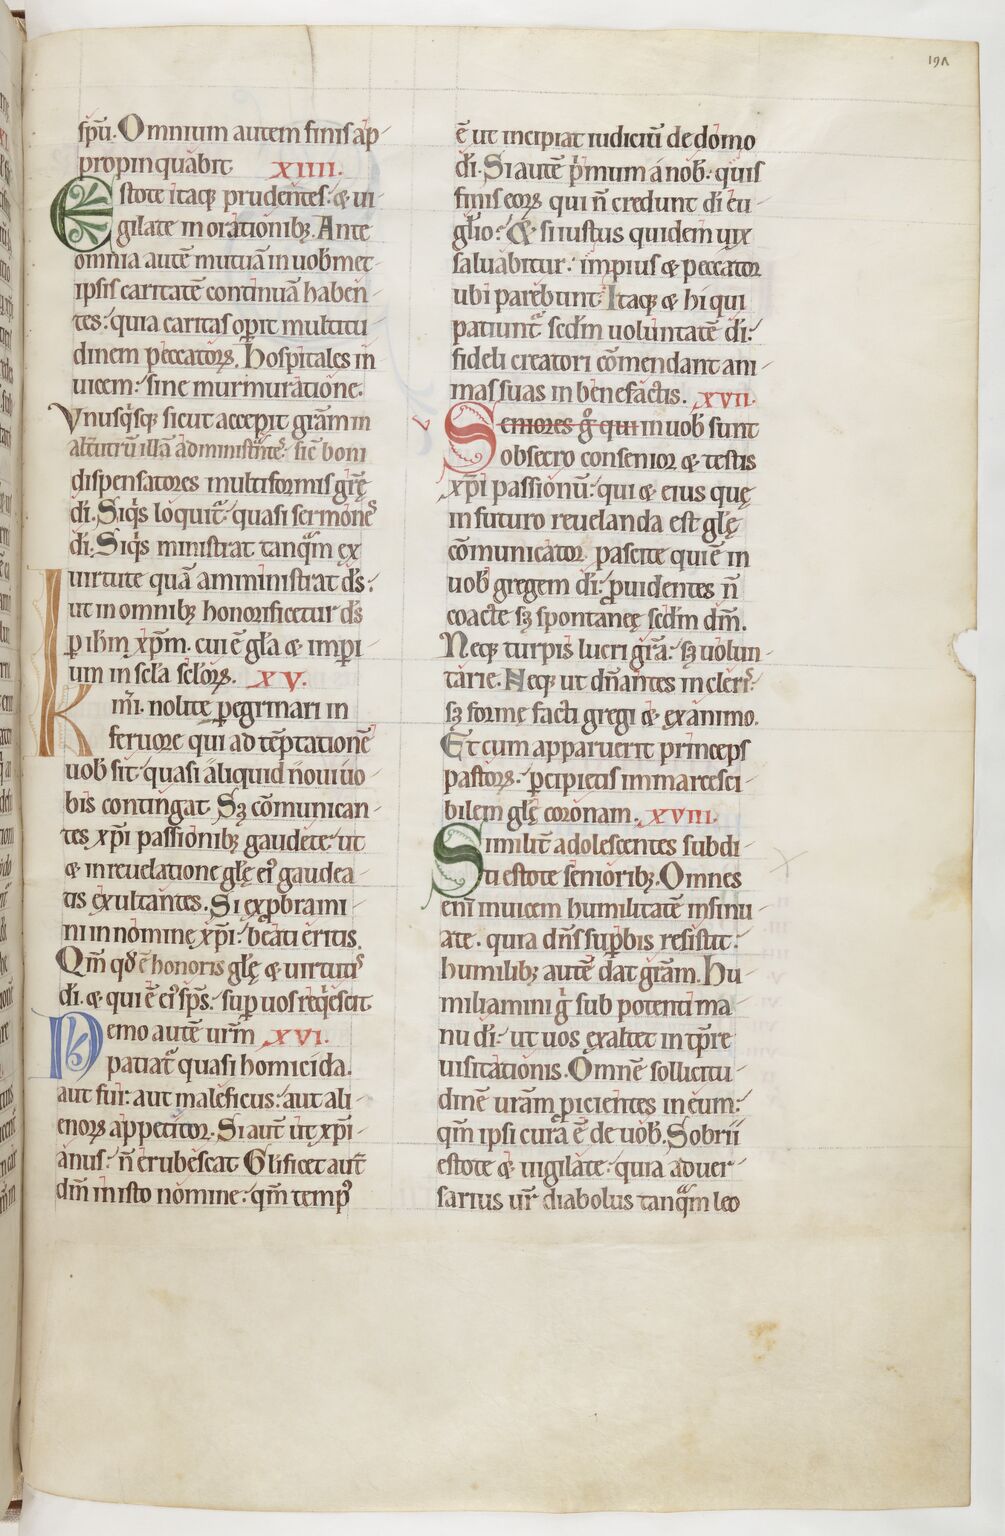 191
sp̄u. Omnium autem finis ap
propinquabit XIIII.
Estote itaq; prudentes: & ui
gilate in orationib;. Ante
omnia autē mutuā in uobmet
ipsis caritatē continuā haben
tes: quia caritas opit multitu
dinem peccatorꝝ. Hospitales in
uicem: sine murmuratione.
Vnusqisq; sicut accepit grām in
altutrū illā administ̄ntes: sic̄ boni
dispensatores multiformis grę̄
di. Siqis loquit̄: quasi sermonē
di. Siqis ministrat tanqam ex
uirtute quā amministrat ds̄:
ut in omnib; honorificetur ds̄
p ihm xp̄m. cui ē gla & impi
um in scla sclorꝝ. XV.
Kmi. nolite pegrinari in
feruore qui ad tēptationē
uob sit quasi aliquid noui uo
bis contingat Sꝫ cōmunican
tes xp̄i passionib; gaudete: ut
& in reuelatione glę ei' gaudea
tis exultantes. Si expbrami
ni in nomine xp̄i: beati eritis.
Qm̄ qd̄ ē honoris glę & uirtutis
di. & qui ē ei' sp̄s: sup uos reqiescit
Nemo autē urm̄ XVI.
patiat̄ quasi homicida.
aut fur: aut maleficus: aut ali
enorꝝ appetitor. Si aut̄ ut xp̄i
anus: n̄ erubescat Glificet aut̄
dm̄ in isto nomine: qm̄ temp'
ē ut incipiat iudiciū de domo
di. Si autē p̄mum a nob: quis
finis eorꝝ qui n̄ credunt di eu
glio: & si iustus quidem uix
saluabitur: impius & peccator
ubi parebunt Itaq; & hi qui
patiunt̄ scdm uoluntatē di:
fideli creatori cōmendant ani
mas suas in benefactis. XVII.
Seniores g̊ qui in uob sunt
obsecro consenior & testis
xp̄i passionū: qui & eius quę
in futuro reuelanda est glę
cōmunicator. pascite qui ē in
uob gregem di: puidentes n̄
coacte sꝫ spontanee scdm dm̄.
Neq; turpis lucri grā: sꝫ uolun
tarie. Neq; ut dn̄antes in cleris:
sꝫ forme facti gregi & exanimo.
Et cum apparuerit princeps
pastorꝝ. pcipietis immarcesci
bilem glę coronam. XVIII.
Similit̄ adolescentes subdi
ti estote senioribꝫ. Omnes
eni inuicem humilitatē insinu
ate. quia dn̄s supbis resistit:
humilib; autē dat grām. Hu
miliamini g̊ sub potenti ma
nu di: ut uos exaltet in tp̄re
uisitationis. Omnē sollicitu
dinē urām picientes in eum:
qm̄ ipsi curā ē de uob. Sobrii
estote & uigilate: quia aduer
sarius ur̄ diabolus tanqam leo